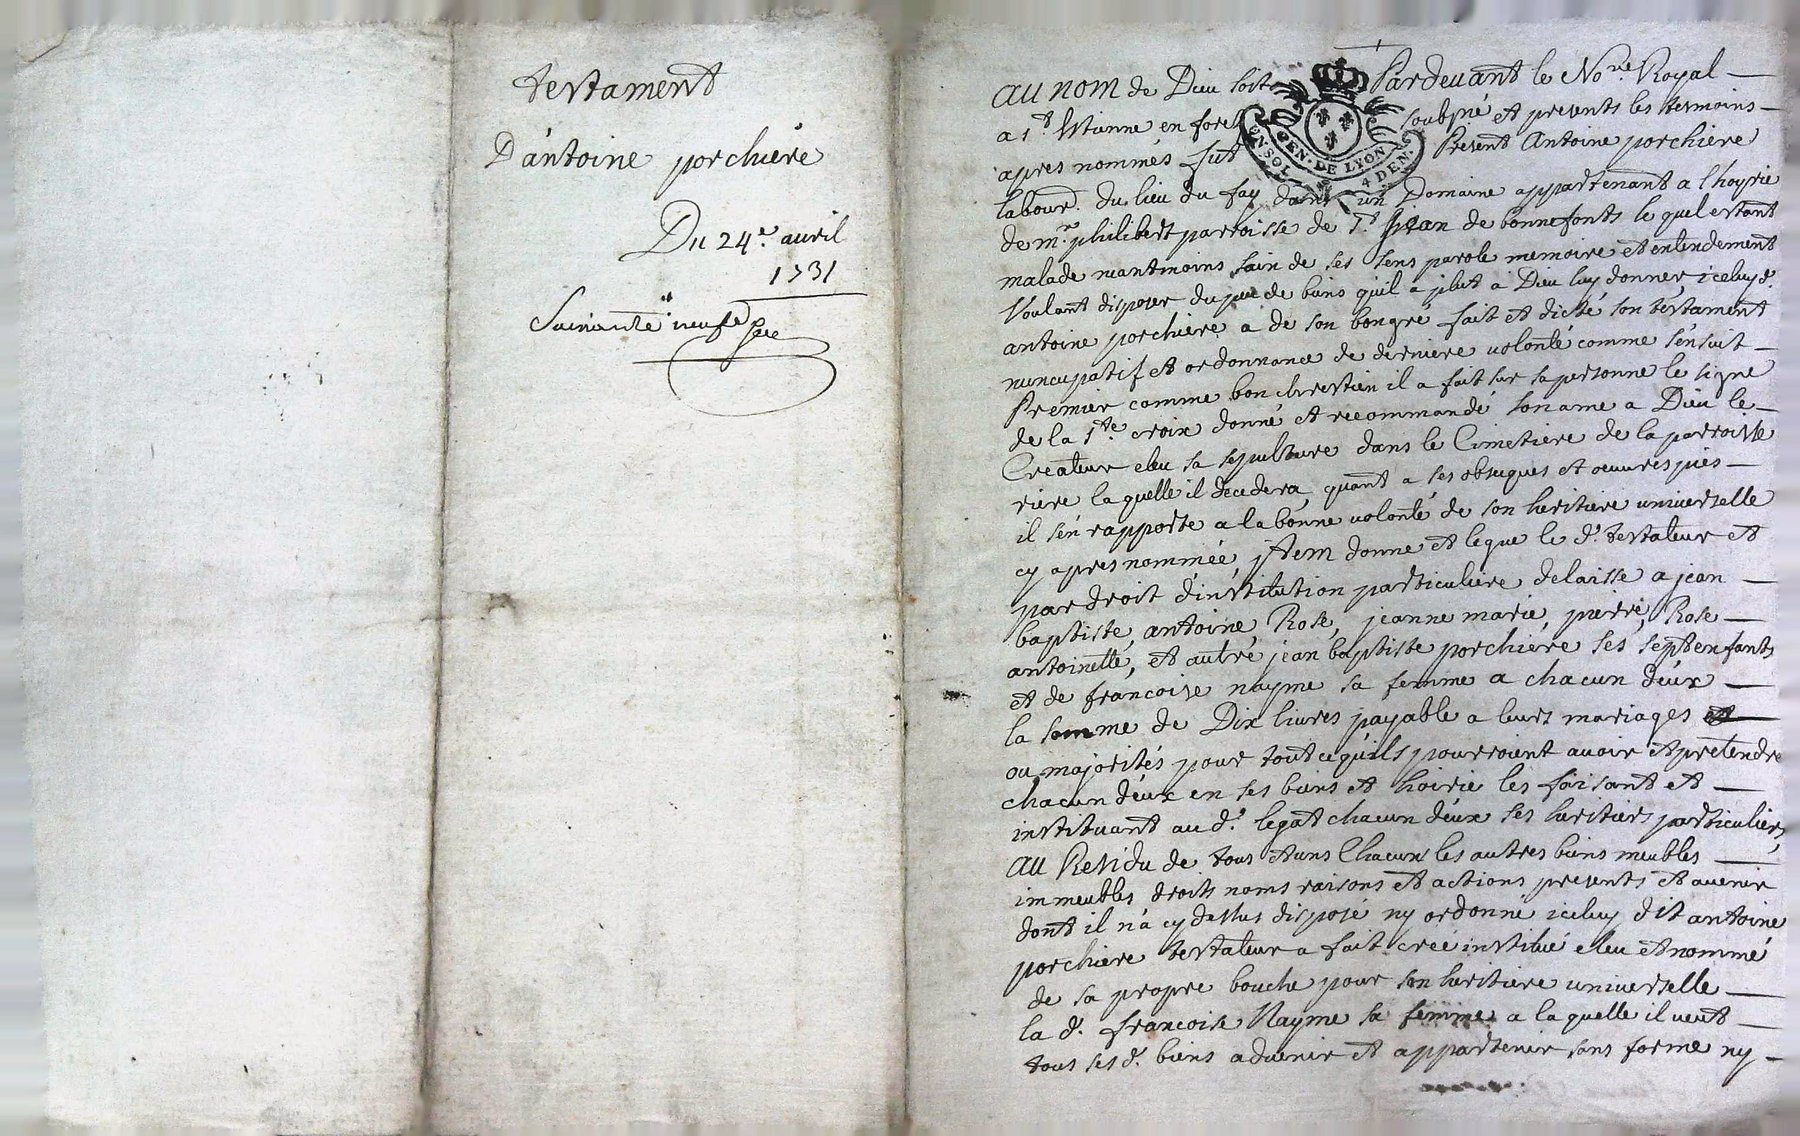 testament
D'antoine porchiere
Du 24e. auril
1731
Soixante neufe
AU NOM de Dieu soit Pardeuant le Nore. Royal
a st. Estienne en forest soubsné et presents les temoins
apres nommés fut Present Antoine porchiere
labour. du lieu du fay dans un Domaine appartenant a l'hoyrie
de mr. philibert parroisse de st. jean de bonnefonts le quel estant
malade neantmoins sain de ses sens parole memoire et entendement
Voulant disposer du peu de biens qu'il a plut a Dieu luy donner, iceluy d.
antoine porchiere a de son bongré fait et dicté son testament
nuncupatif et ordonnance de derniere volonté comme s'ensuit
Premier comme bon chrestien il a fait sur sa personne le signe
de la ste. croix donné et recommandé son ame a Dieu le
Createur eleu sa sepulture dans le Cimetiere de la parroisse
riere la quelle il decedera, quant a ses obseques et oeuvres pies
il s'en rapporte a la bonne volonté de son heritiere universelle
cy apres nommée, jtem donne et legue le d. testateur et
par droit d'institution particuliere delaisse a jean
baptiste, antoine, Rose, jeanne marie, pierre, Rose
antoinette, et autre jean baptiste porchiere ses sept enfants
et de francoise nayme sa femme a chacun d'eux
la somme de Dix livres payable a leurs mariages
ou majorités pour tout ce qu'ils pourroient auoir et pretendre
chacun d'eux en ses biens et hoirie les faisant et
instituant au d. legat chacun d'eux ses heritiers particuliers,
AU Residu de tous et uns Chacuns les autres biens meubles
immeubles droits noms raisons et actions presents et auenir
dont il n'a cy dessus disposé ny ordonné iceluy dit antoine
porchiere testateur a fait creé institué eleu et nommé
de sa propre bouche pour son heritiere universelle
la d. francoise Nayme sa femme a la quelle il veut
tous ses d. biens aduenir et appartenir sans forme ny
GEN. DE LYON
4 DEN.